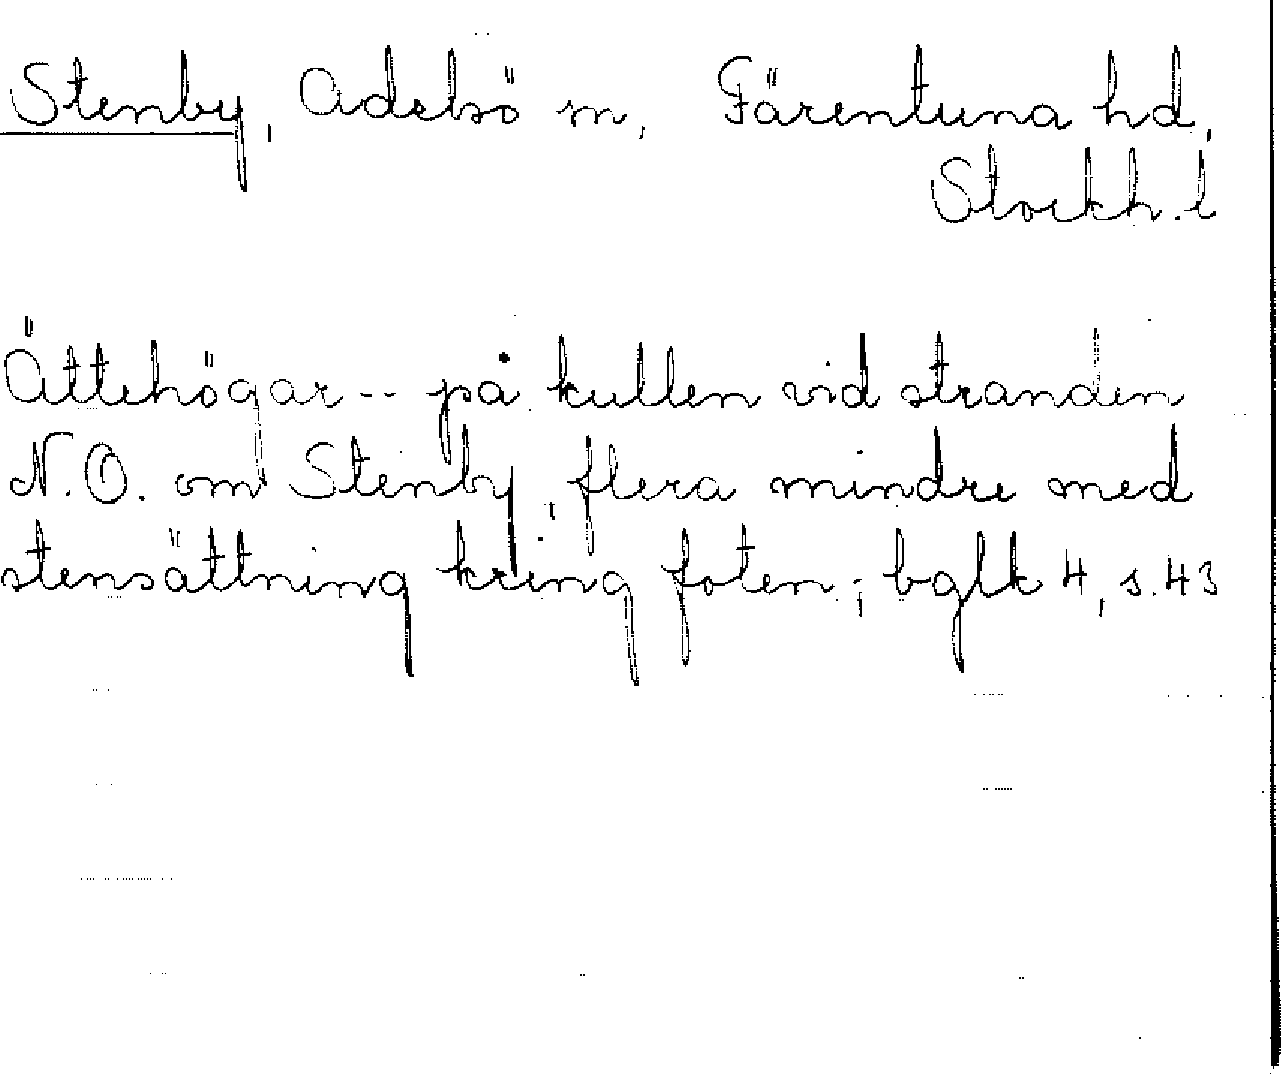 Stenby, Adelsö sn, Färentuna hd,
Stockh. l
Ättehögar -- på kullen vid stranden
N.O. om Stenby, flera mindre med
stensättning kring foten; bglk 4, s. 43